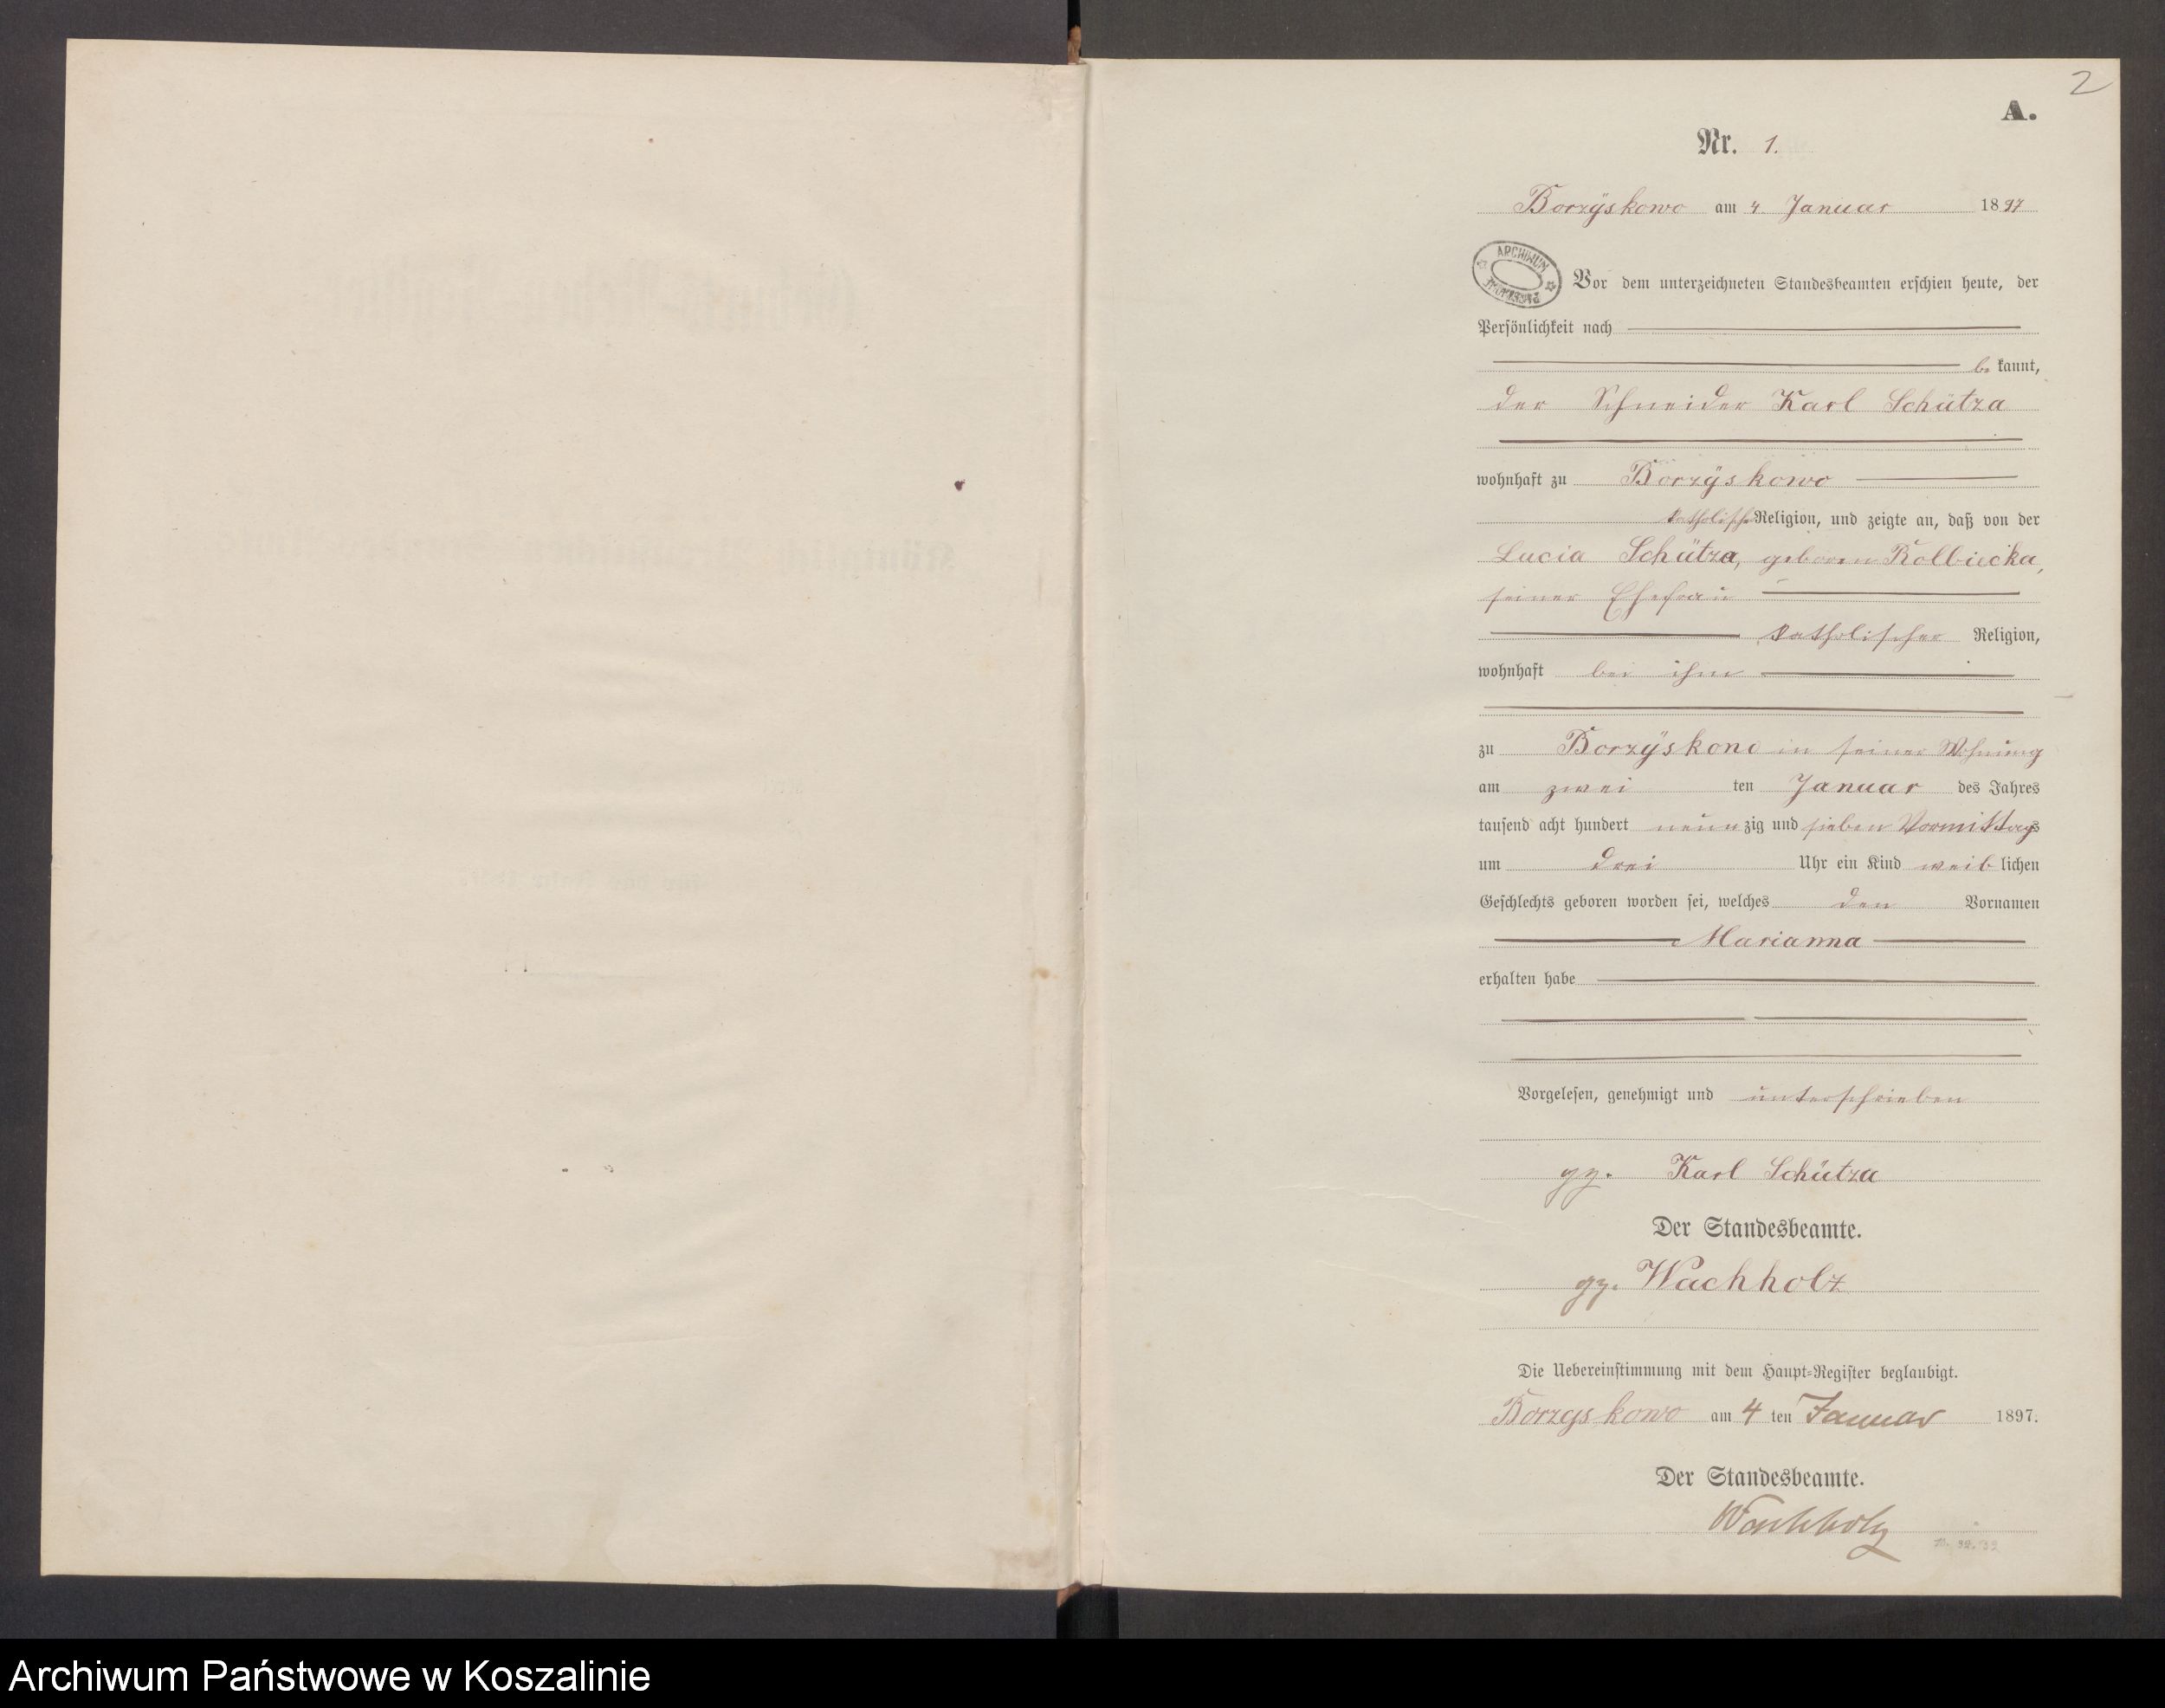 2
A.
Nr. 1.
Borzÿskowo am 4 Januar 1897
ARCHIWUM
Vor dem unterzeichneten Standesbeamten erschien heute, der
Persönlichkeit nach
be kannt,
der Schneider Karl Schütza
wohnhaft zu Borzÿskowo
katholischer Religion, und zeigte an, daß von der
Lucia Schütza, geboren Kolbiecka,
seiner Ehefrau
katholischer Religion,
wohnhaft bei ihm
zu Borzÿskowo in seiner Wohnung
am zwei ten Januar des Jahres
tausend acht hundert neunzig und sieben Vormittags
um drei Uhr ein Kind weiblichen
Geschlechts geboren worden sei, welches den Vornamen
Marianna
erhalten habe
Vorgelesen, genehmigt und unterschrieben
gz. Karl Schütza
Der Standesbeamte.
gz. Wachholz
Die Uebereinstimmung mit dem Haupt=Register beglaubigt.
Borzyskowo am 4 ten Januar 1897.
Der Standesbeamte.
Wachholz
Archiwum Państwowe w Koszalinie